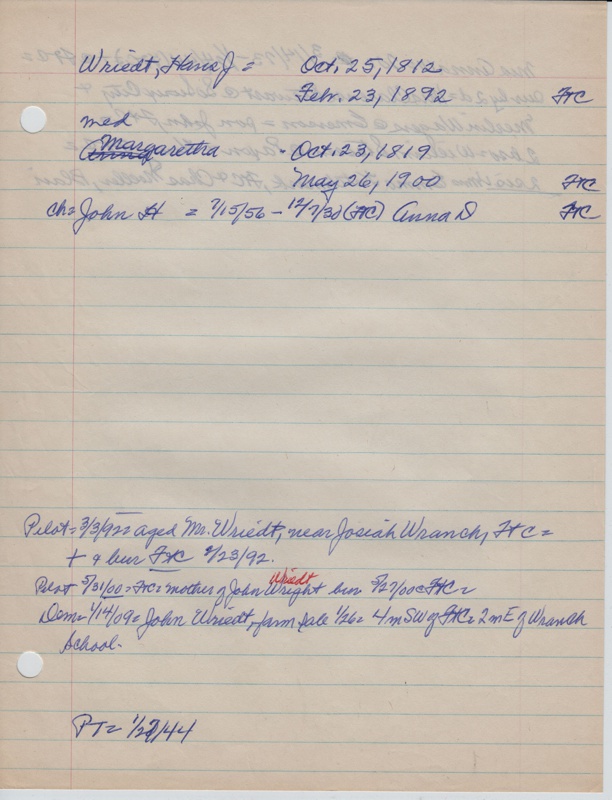 Wriedt, Hans J = Oct. 25, 1812
Feb. 23, 1892 FtC
med
Anna Margaretha - Oct. 23, 1819
May 26, 1900 FtC
ch= John H = 7/15/56 - 12/7/30 (FtC) Anna D FtC
Pilot = 3/3/92 = aged Mr. Wriedt, near Josiah Wranch, FtC =
+ & bur FtC 2/23/92.
Pilot 5/31/00 = FtC = mother of John Wright Wriedt bur 5/27/00 @ FtC =
Dem = 1/14/09 = John Wriedt, farm sale 1/26 = 4 m SW of FtC = 2 m E of Wranch
School.
PT = 1/27/44